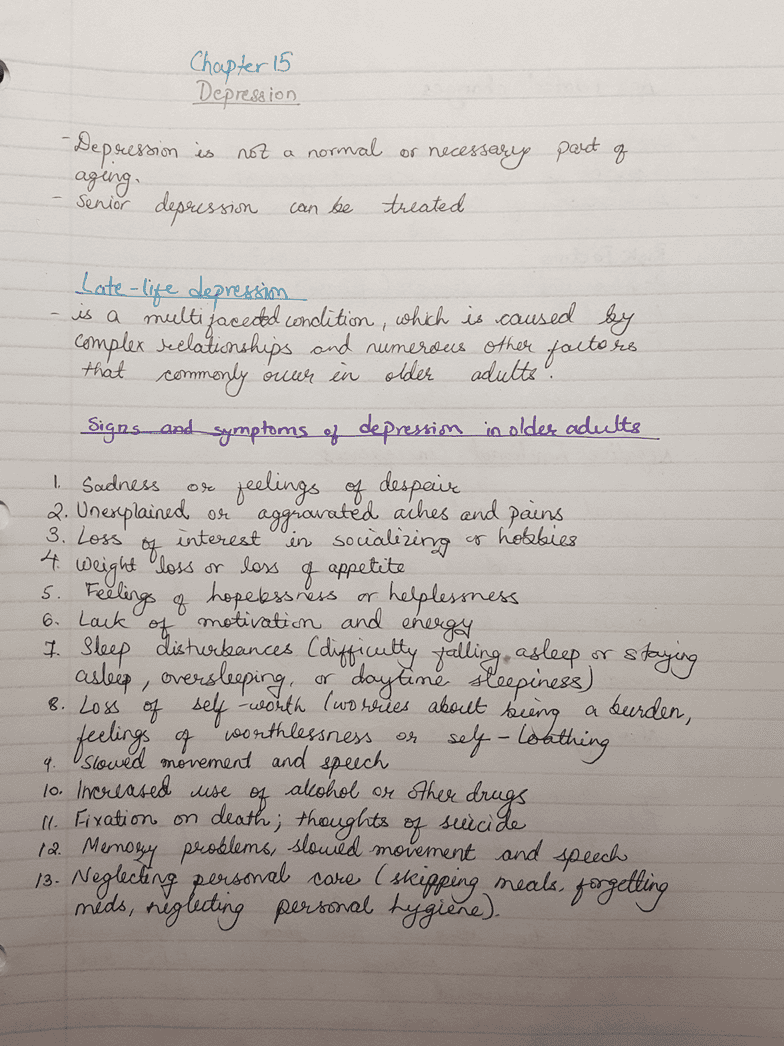 Chapter 15
Depression
- Depression is not a normal or necessary part of
aging.
- Senior depression can be treated
Late-life depression
- is a multifaceted condition, which is caused by
complex relationships and numerous other factors
that commonly occur in older adults.
Signs and symptoms of depression in older adults
1. Sadness or feelings of despair
2. Unexplained or aggravated aches and pains
3. Loss of interest in socializing or hobbies
4. Weight loss or loss of appetite
5. Feelings of hopelessness or helplessness
6. Lack of motivation and energy
7. Sleep disturbances (difficulty falling asleep or staying
asleep, oversleeping, or daytime sleepiness)
8. Loss of self-worth (worries about being a burden,
feelings of worthlessness or self-loathing
9. Slowed movement and speech
10. Increased use of alcohol or other drugs
11. Fixation on death; thoughts of suicide
12. Memory problems, slowed movement and speech
13. Neglecting personal care (skipping meals, forgetting
meds, neglecting personal hygiene).